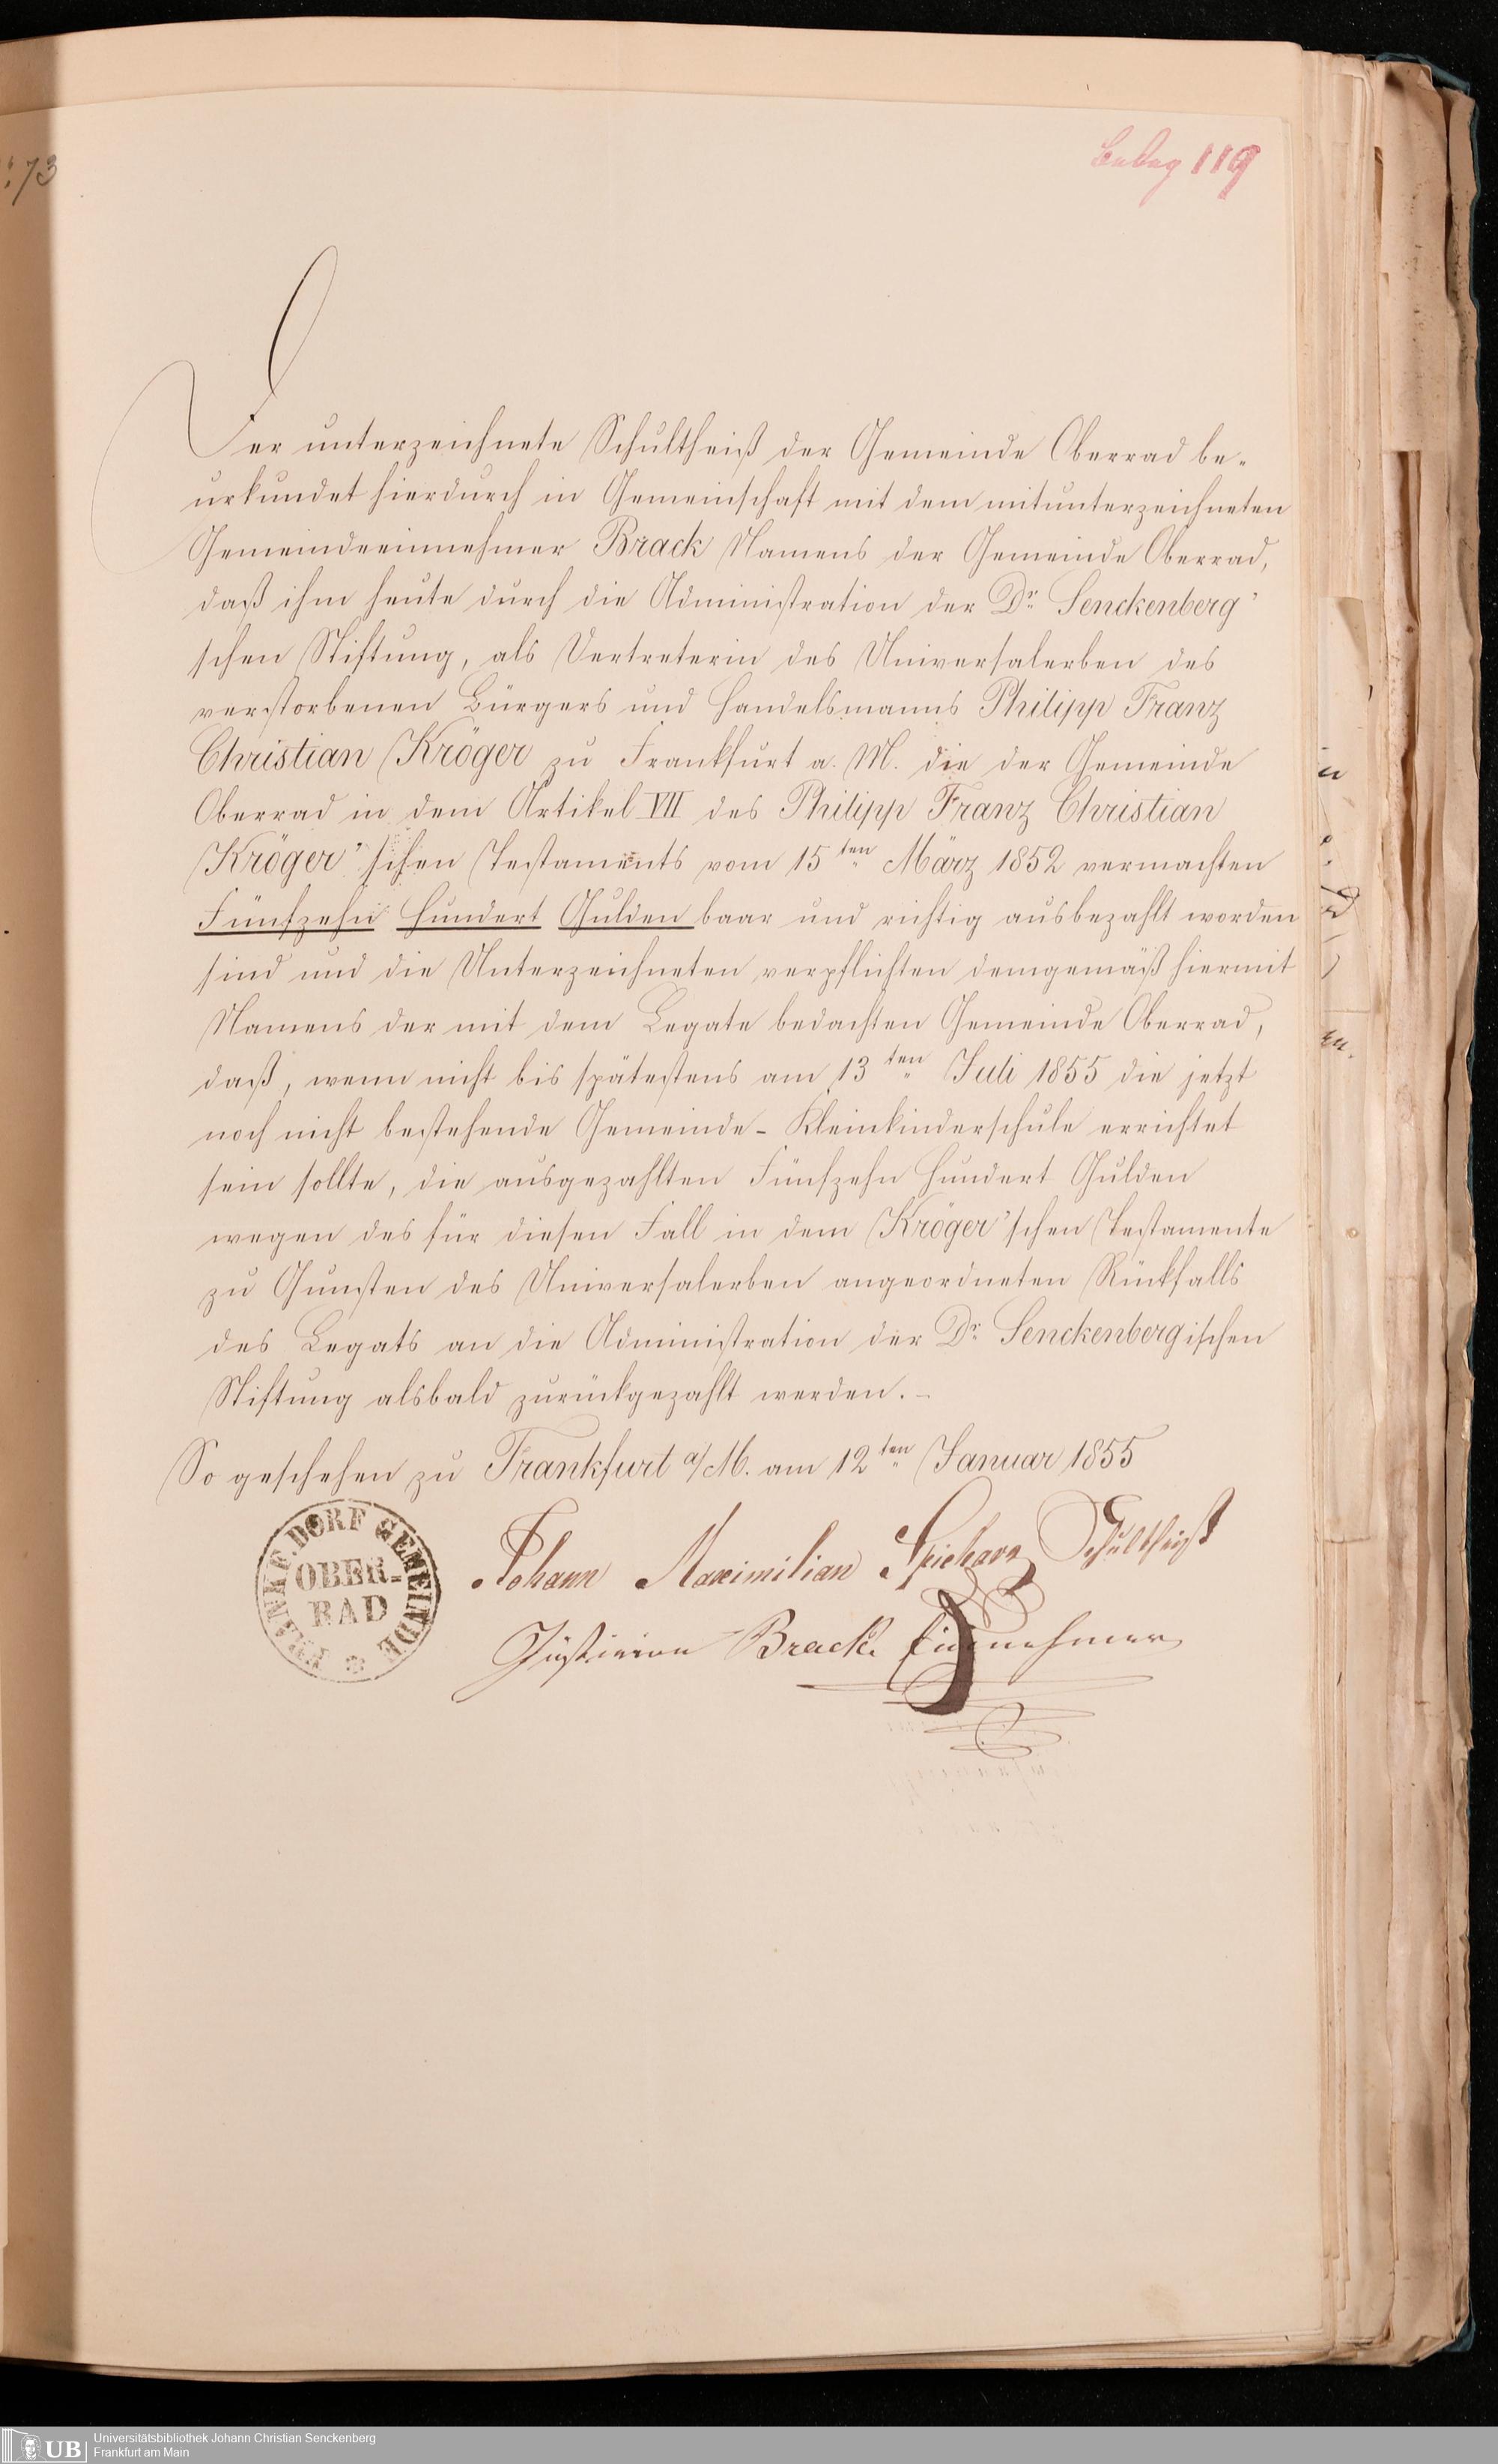 : 73
Beleg 119
Der unterzeichnete Schultheiß der Gemeinde Oberrad be-
urkundet hierdurch in Gemeinschaft mit dem mitunterzeichneten
Gemeindeeinnehmer Brack Namens der Gemeinde Oberrad,
daß ihm heute durch die Administration der Dr. Senckenberg'
schen Stiftung, als Vertreterin des Universalerben des
verstorbenen Bürgers und Handelsmanns Philipp Franz
Christian Kröger zu Frankfurt a. M. die der Gemeinde
Oberrad in dem Artikel VII des Philipp Franz Christian
Kröger'schen Testaments vom 15ten März 1852 vermachten
Fünfzehn Hundert Gulden baar und richtig ausbezahlt worden
sind und die Unterzeichneten verpflichten demgemäß hiermit
Namens der mit dem Legate bedachten Gemeinde Oberrad,
daß, wenn nicht bis spätestens am 13ten Juli 1855 die jetzt
noch nicht bestehende Gemeinde-Kleinkinderschule errichtet
sein sollte, die ausgezahlten Fünfzehn Hundert Gulden
wegen des für diesen Fall in dem Kröger'schen Testamente
zu Gunsten des Universalerben angeordneten Rückfalls
des Legats an die Administration der Dr. Senckenbergischen
Stiftung alsbald zurückgezahlt werden. –
So geschehen zu Frankfurt a/M. am 12ten Januar 1855
Johann Maximilian Spicharz Schultheiß
Brack. Einnehmer
FRANKF. DORF GEMEINDE
OBER-
RAD
UB
Universitätsbibliothek Johann Christian Senckenberg
Frankfurt am Main